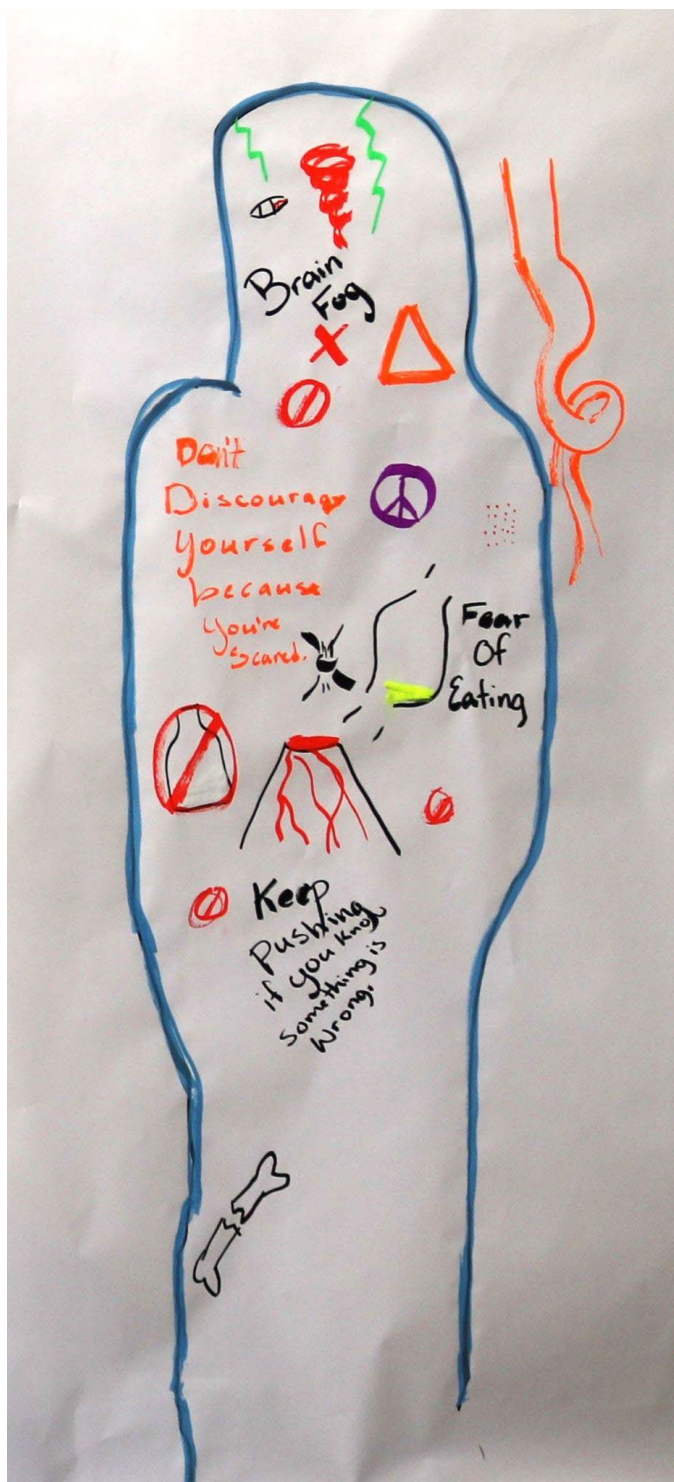 Brain
Fog
Don't
Discourage
Yourself
because
You're
Scared.
Fear
Of
Eating
Keep
Pushing
if you know
Something is
Wrong.